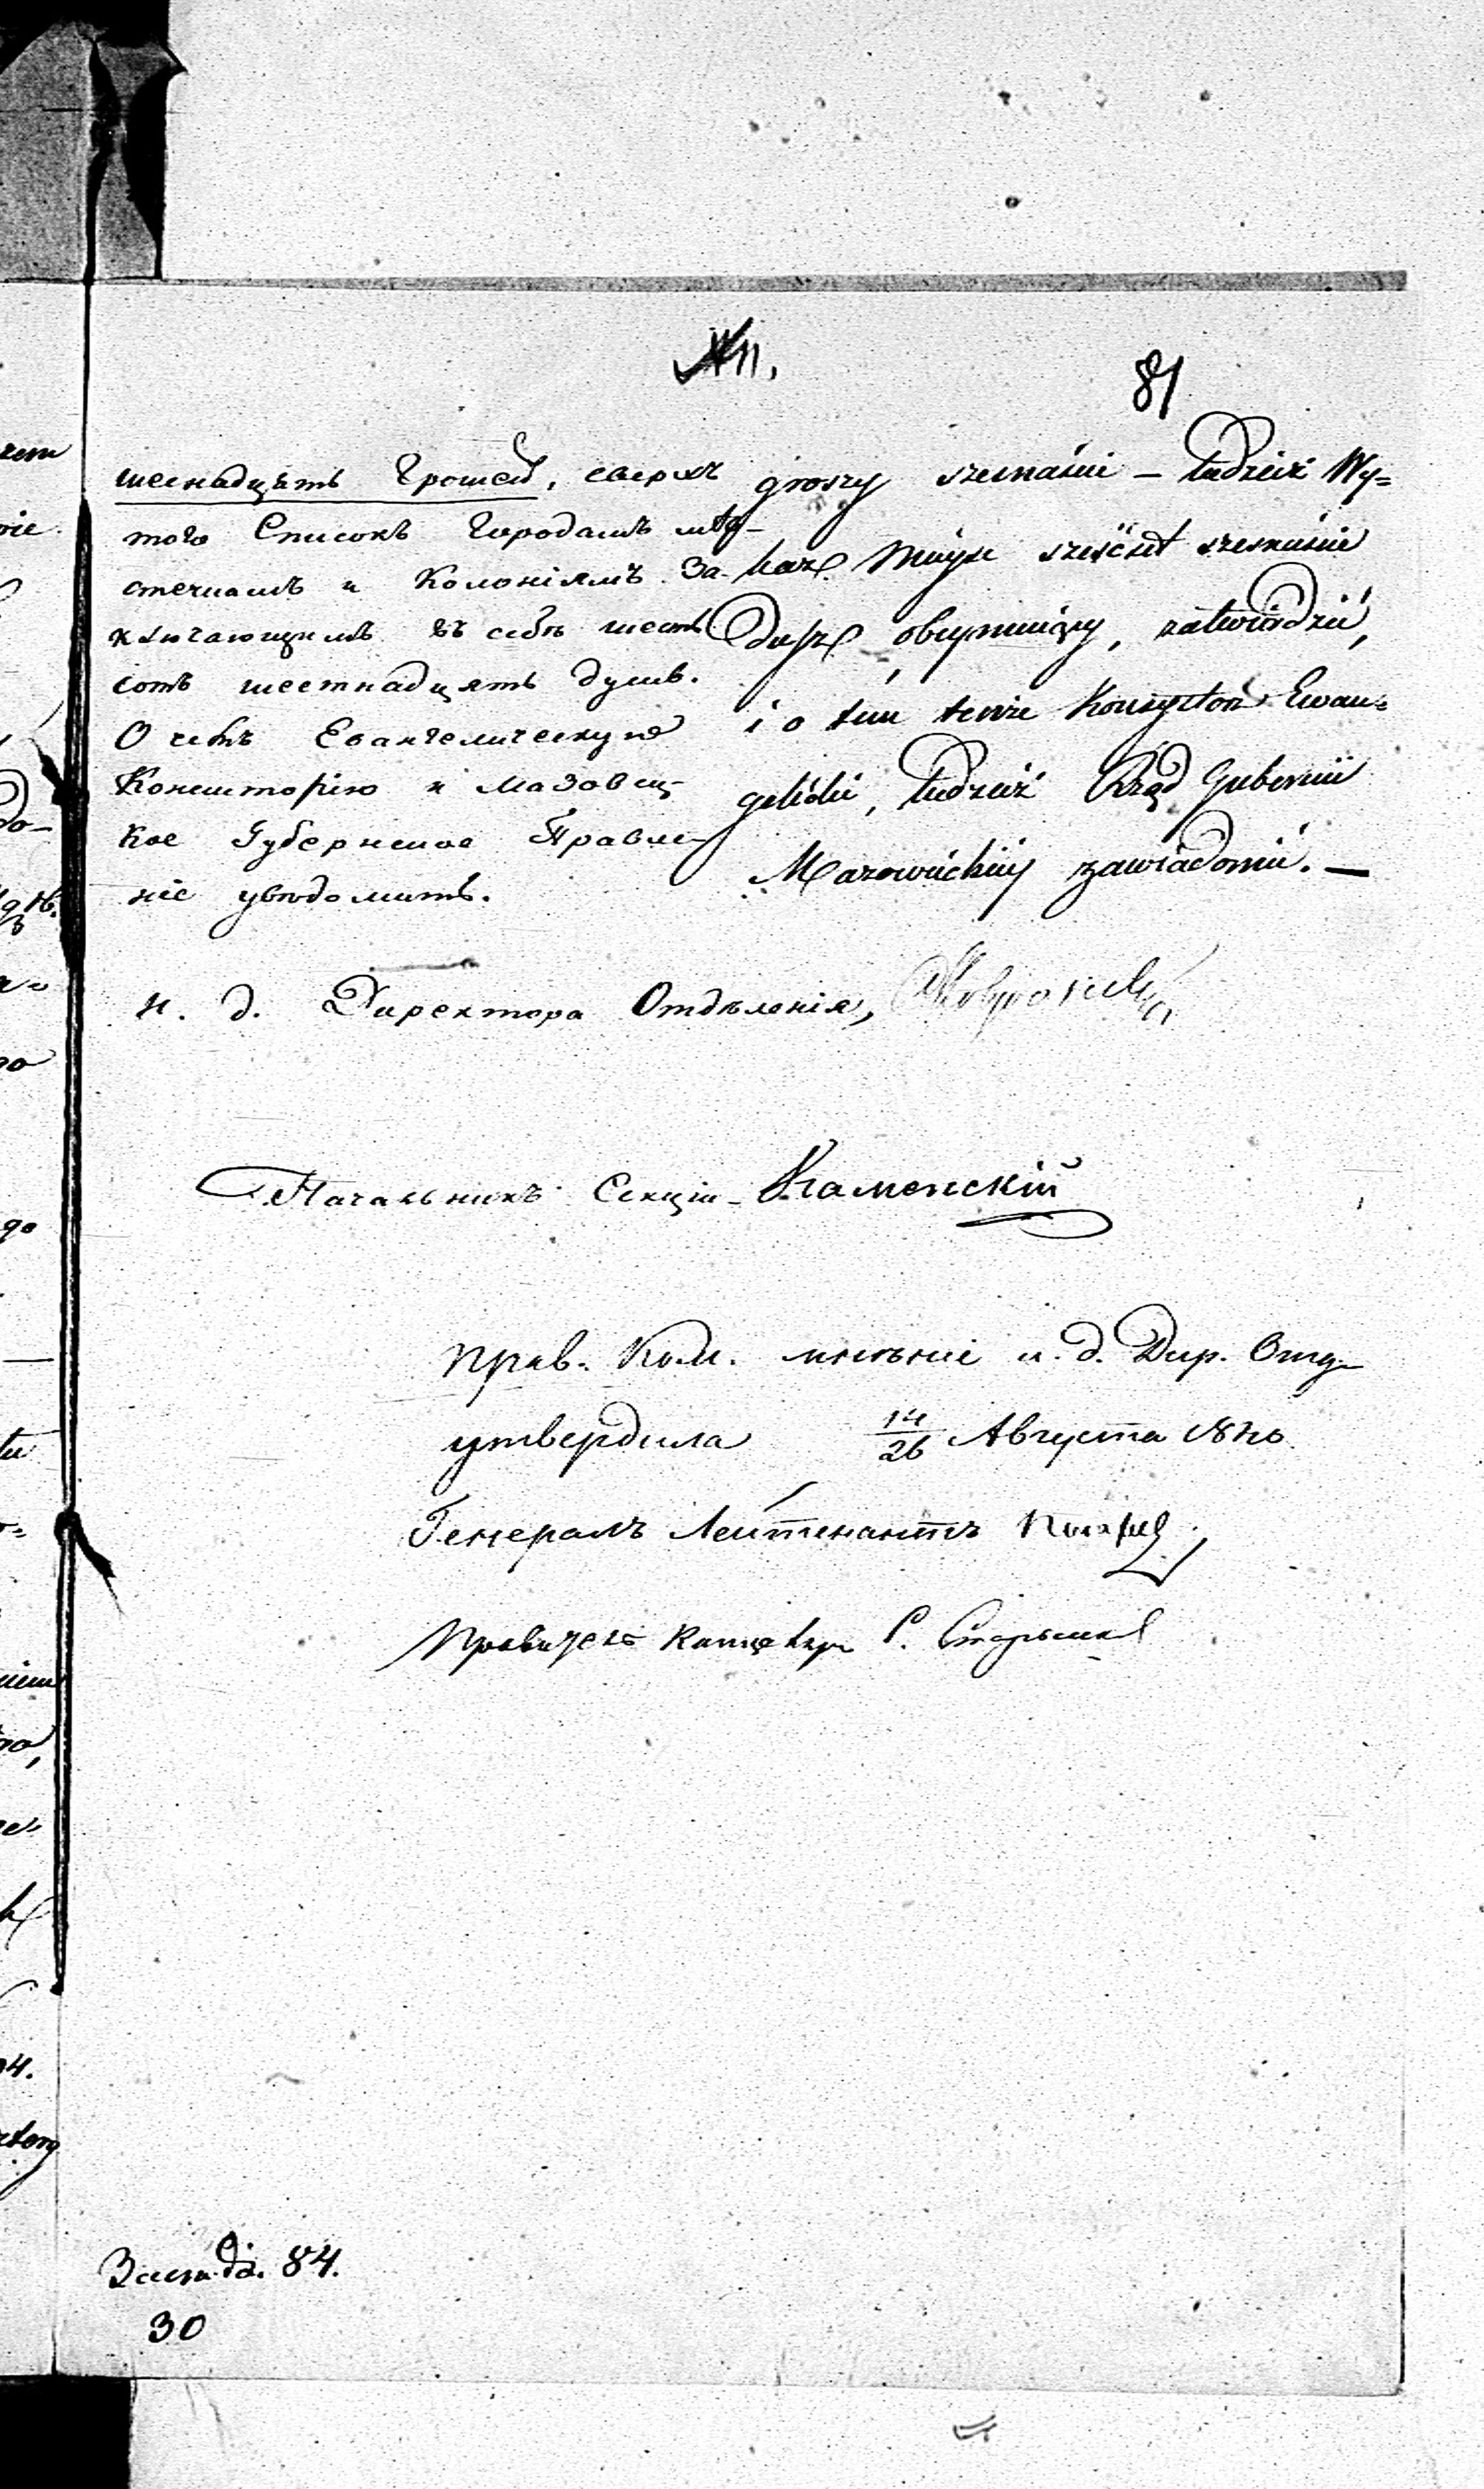 81
шеснадцать Грошей, сверхъ
того Списокъ Городамъ мѣ-
стечкамъ и Колоніямъ За-
ключающимъ въ себѣ шесть
сотъ шестнадцать душъ.
О чемъ Евангелическую
Консисторію и Мазовец-
кое Губернское Правле-
ніе увѣдомить.
groszy szesnaście – tudzież Wy-
kaz Miejsc sześćset szesnaście
dusz obejmujący, zatwierdzić,
i o tém tenże Konsystorz Ewan-
gelicki, tudzież Rząd Gubernii
Mazowieckiej zawiadomić. —
И. д. Директора Отдѣленія,
Начальникъ Секціи – Каменскій
Прав. Ком. мнѣніе и. д. Дир. Отд.
утвердила 14/26 Августа 1840
Генералъ Лейтенантъ
Правитель Канцеляріи
84.
30